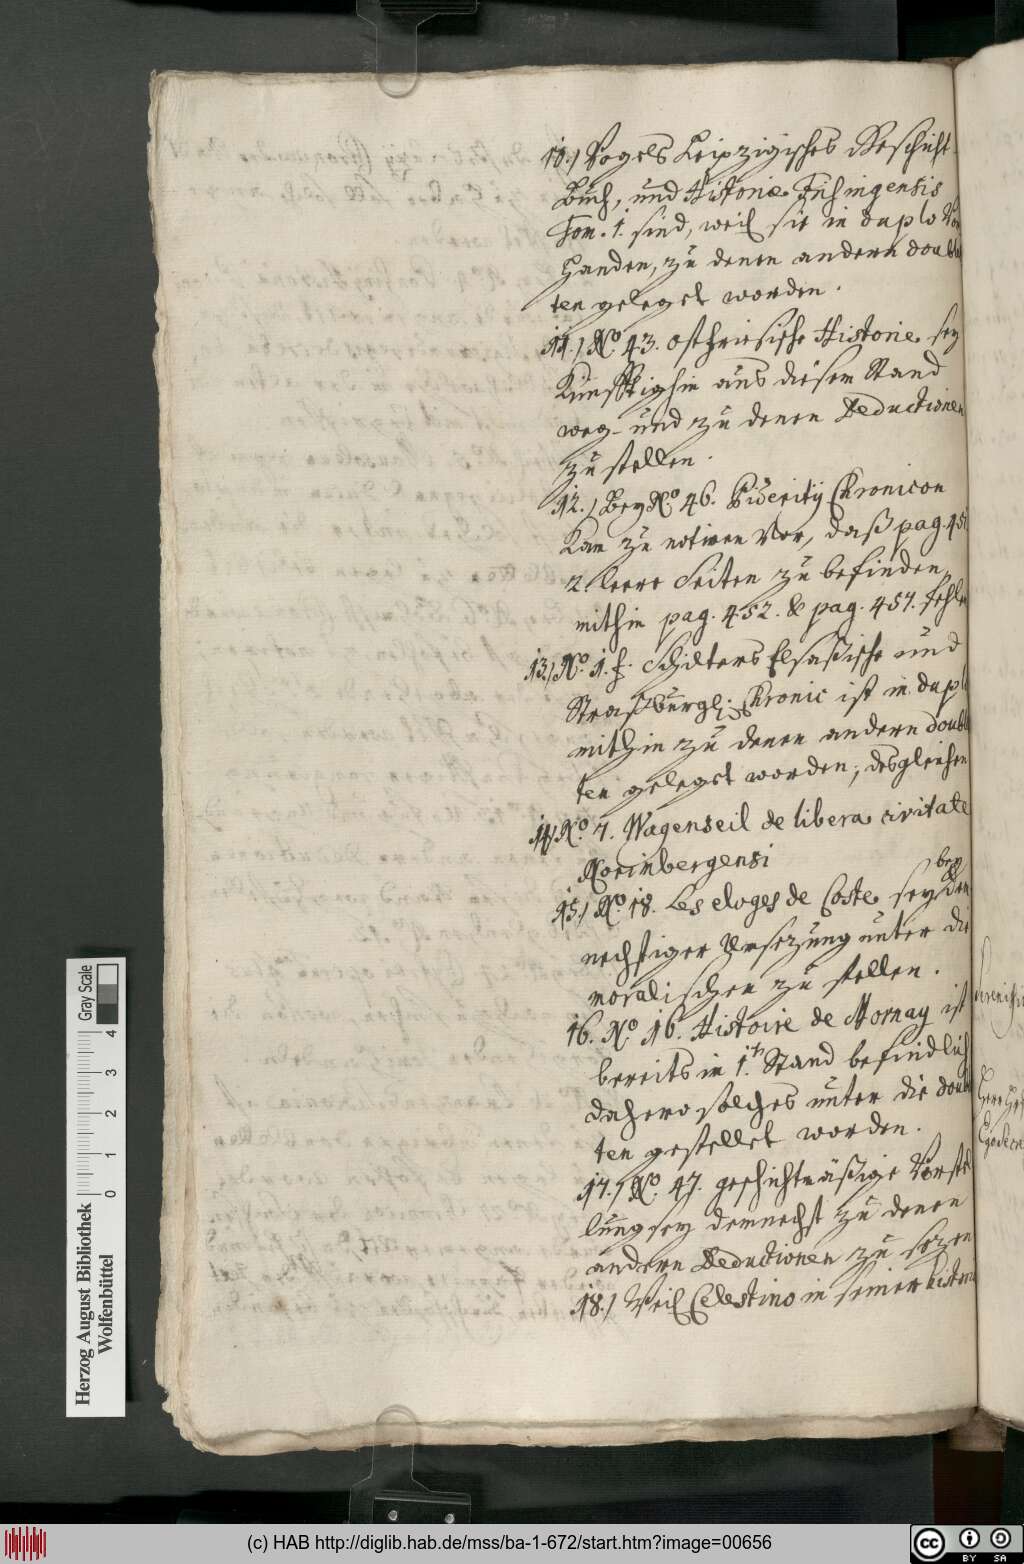 10.) Vogels Leipzigisches Geschicht-
Buch, und Historiæ
Tom. 1. sind, weil sie in duplo Vor
Handen, zu denen andern doublet
ten geleget worden.
11.) No. 43. ostfriesische Historie sey
Künfftighin aus diesem Stand
weg- und zu denen Deductionen
zu stellen.
12.) Bey No. 46. Chronicon
Kam zu notiren Vor, daß pag. 451
2. leere Seiten zu befinden,
mithin pag. 452. & pag. 457. fehlen
13.) No. 1. f. Schilters Elsaßische und
Straßburgl. Chronic ist in duplo
mithin zu denen andern doublet
ten geleget worden; desgleichen
14.) No. 7. Wagenseil de libera civitate
Norimbergensi
15.) No. 18. Les eloges de Coste sey bey den
nechstiger Umsezung unter die
moralischen zu stellen.
16. No. 16. Histoire de Mornay ist
bereits in 1.tn Stand befindlich
dahero solches unter die doublet
ten gestellet worden.
17.) No. 47. geschichtmäßige Vorstel
lung sey demnechst zu denen
andern Deductionen zu sezen
18.) Weil Celestino in seiner histori
Gray Scale
0 1 2 3 4
Herzog August Bibliothek
Wolfenbüttel
(c) HAB http://diglib.hab.de/mss/ba-1-672/start.htm?image=00656
cc BY SA